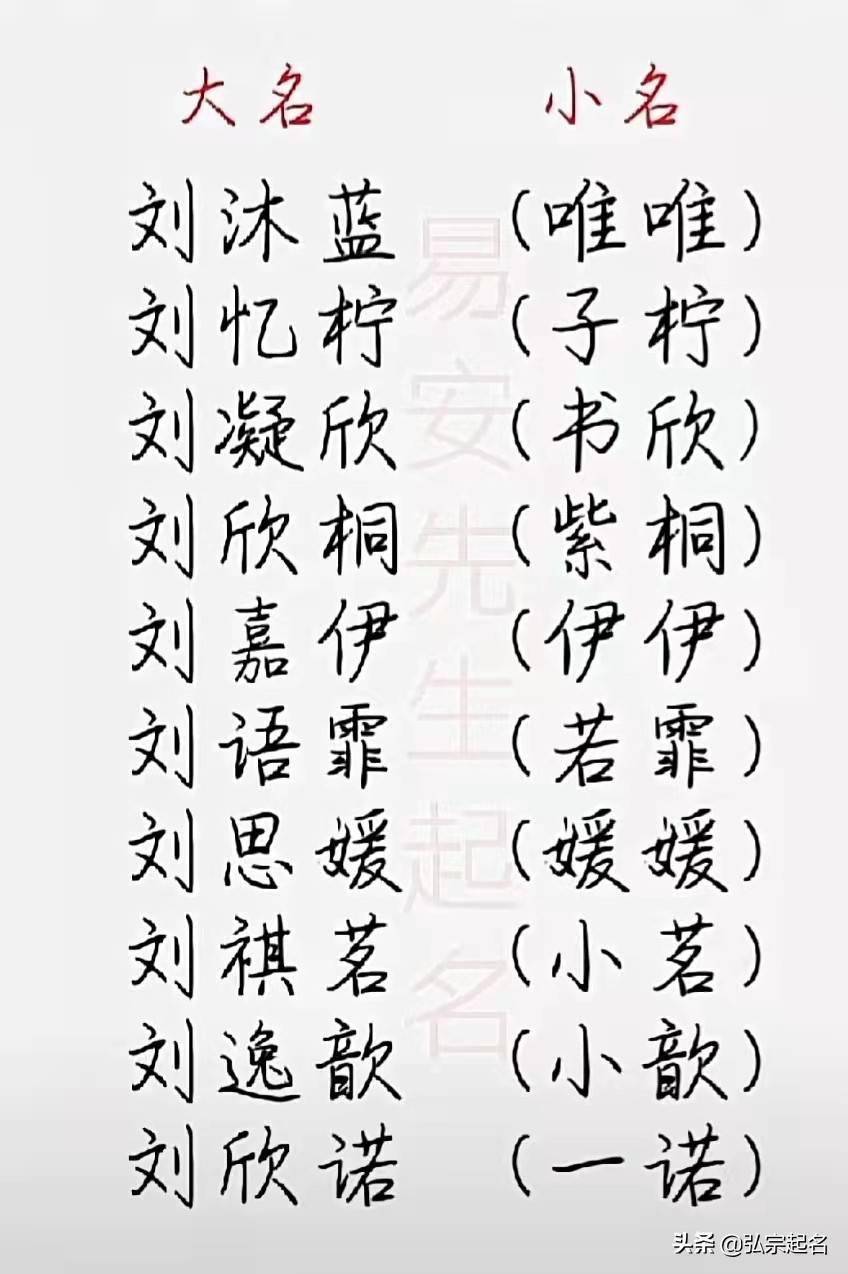 大名 小名
刘沐蓝 (唯唯)
刘忆柠 (子柠)
刘凝欣 (书欣)
刘欣桐 (紫桐)
刘嘉伊 (伊伊)
刘语霏 (若霏)
刘思媛 (媛媛)
刘祺茗 (小茗)
刘逸歆 (小歆)
刘欣诺 (一诺)
易安先生起名
头条 @弘宗起名